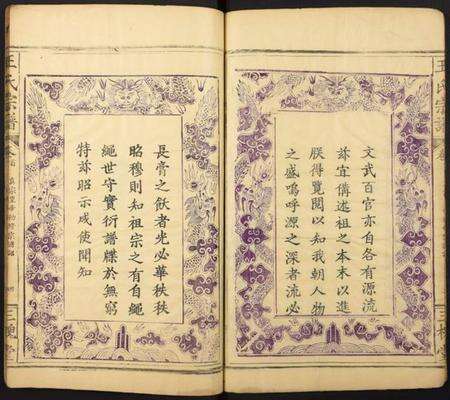 文武百官亦自各有源流
茲宜備述祖之本末以進
朕得覽閱以知我朝人物
之盛嗚呼源之深者流必
長膏之飫者光必華秩秩
昭穆則知祖宗之有自繩
繩世守實衍譜牒於無窮
特茲昭示咸使聞知
王氏宗譜
王氏宗譜
三槐堂
三槐堂